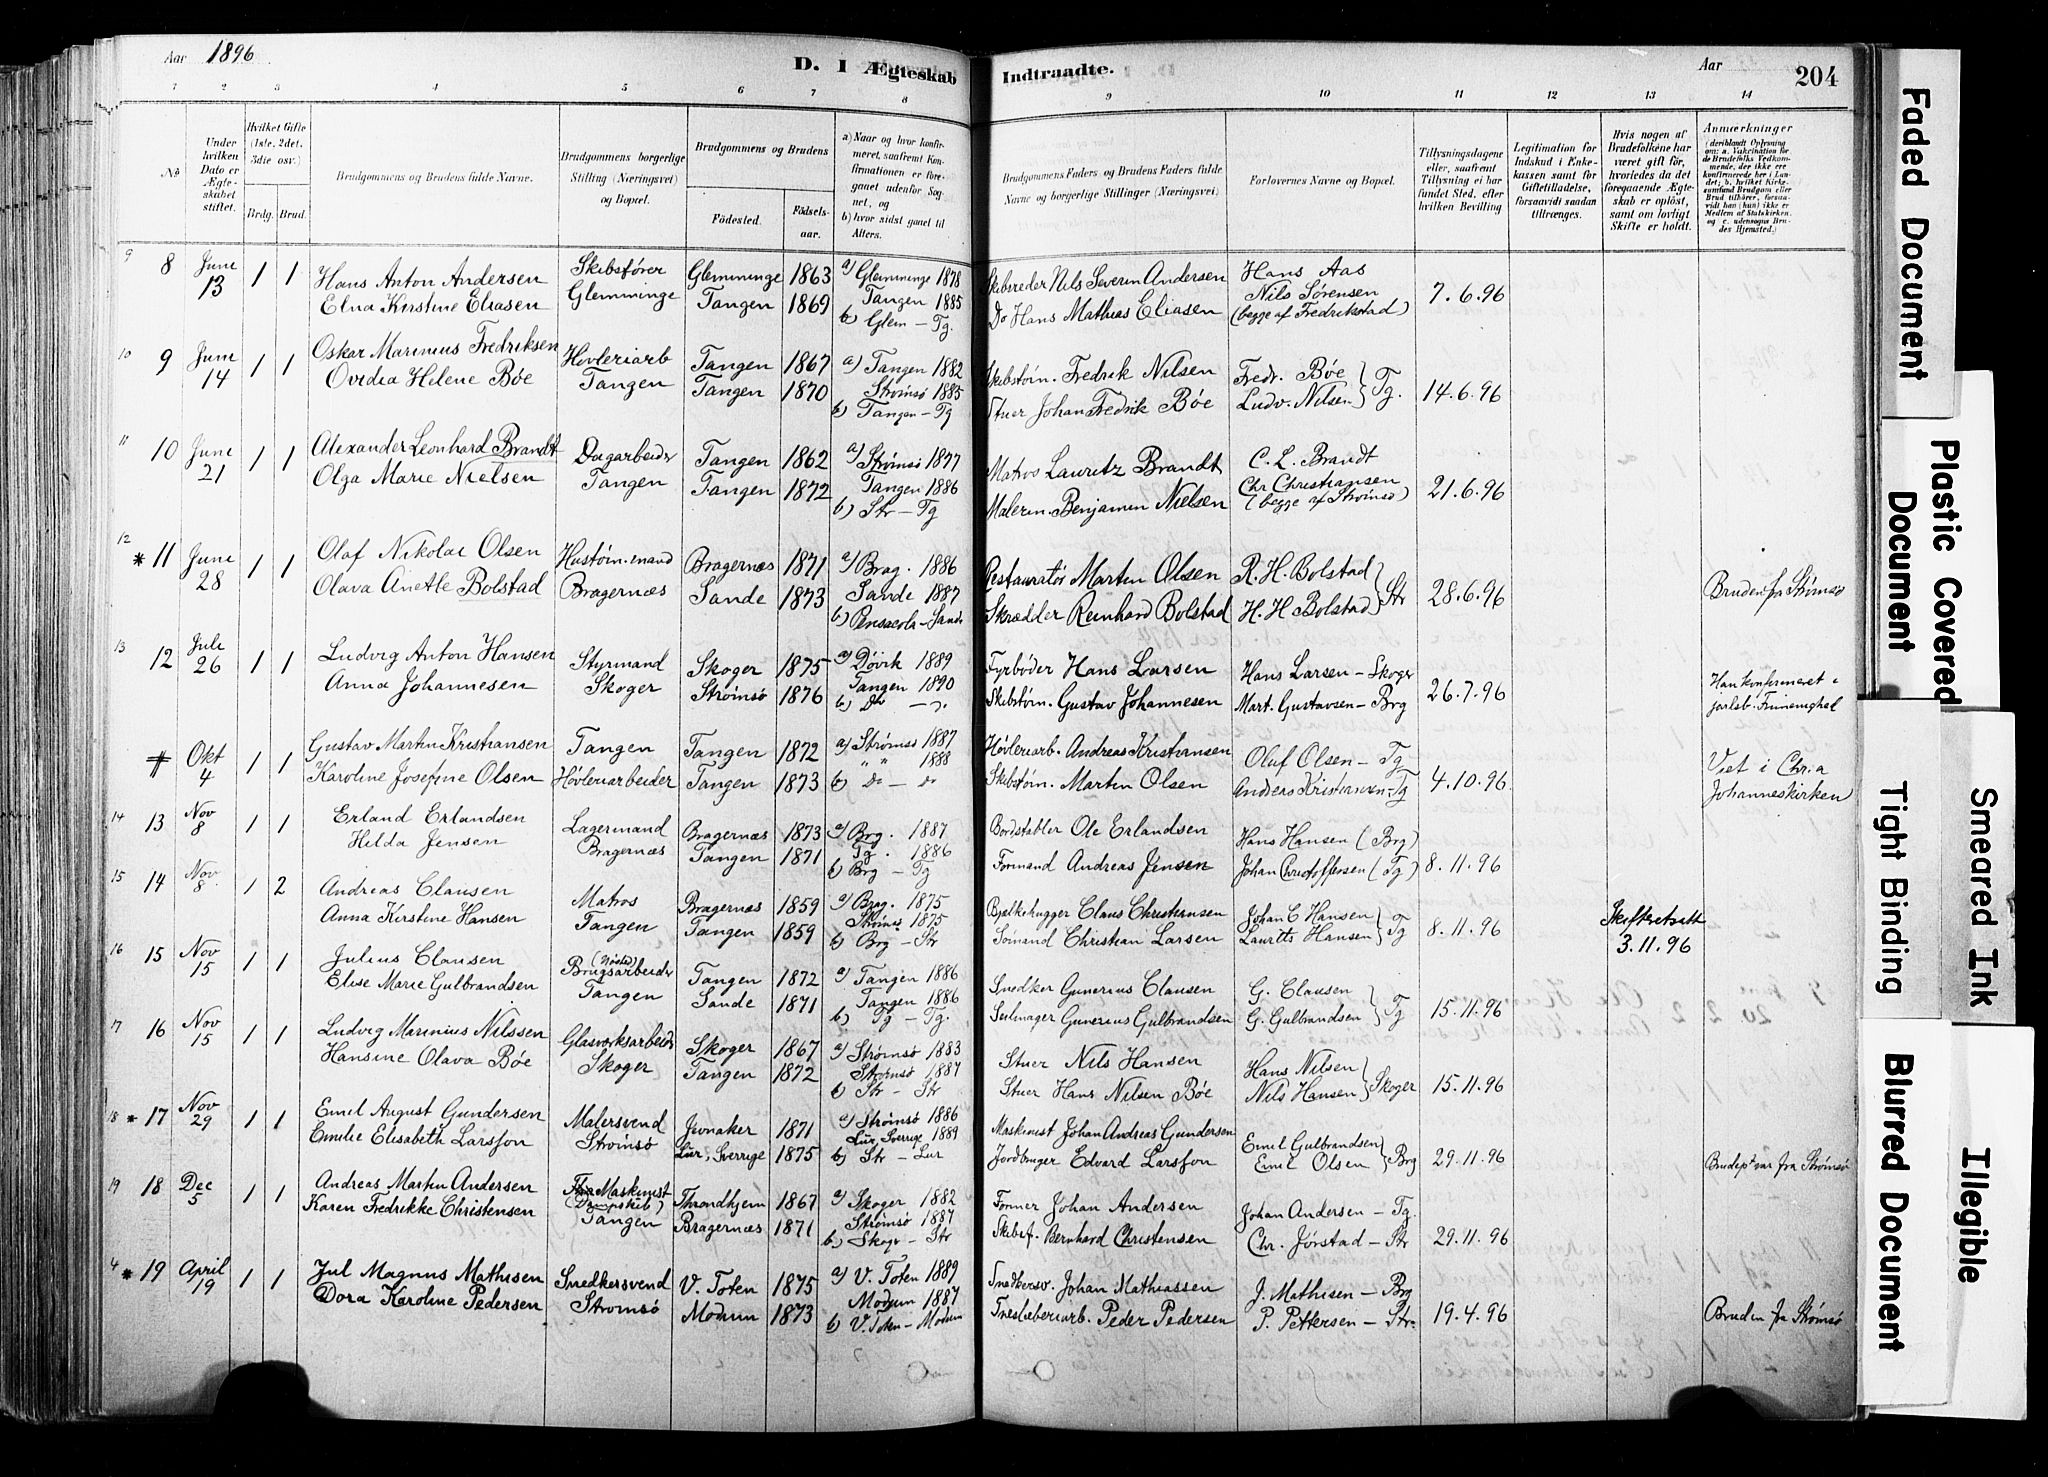 Aar 1896
D. 1 Ægteskab
Indtraadte.
Aar
204
1 2 3 4 5 6 7 8 9 10 11 12 13 14
No
Under hvilken Dato er Ægteskabet stiftet.
Hvilket Gifte (1ste, 2det, 3die osv.)
Brdg. Brud.
Brudgommens og Brudens fulde Navne.
Brudgommens borgerlige Stilling (Næringsvei) og Bopæl.
Brudgommens og Brudens
Fødested. Fødselsaar.
a) Naar og hvor konfirmeret, saafremt Konfirmationen er foregaaet udenfor Sognet, og
b) hvor sidst gaaet til Alters.
Brudgommens Faders og Brudens Faders fulde Navne og borgerlige Stillinger (Næringsvei)
Forlovernes Navne og Bopæl.
Tillysningsdagene eller, saafremt Tillysning ei har fundet Sted, efter hvilken Bevilling
Legitimation for Indskud i Enkekassen samt for Giftetilladelse, forsaavidt saadan tiltrænges.
Hvis nogen af Brudefolkene har været gift før, hvoriedes da det foregaaende Ægteskab er opløst, samt om lovligt Skifte er holdt.
Anmærkninger (deriblandt Oplysning om: a. Vakcination for de Brudefolks Vedkommende, der ikke ere konfirmerede her i Landet; b. hvilket Kirkesamfund Brudgom eller Brud tilhører, forsaavidt han (hun) ikke er Medlem af Statskirken, og c. udensogns Brudes Hjemsted.)
9 8 Juni 13 1 1 Hans Anton Andersen Skibsfører Glemminge 1863 a) Glemminge 1878 Skibsreder Nils Severin Andersen Hans Aas
Elna Kirstine Eliasen Glemminge Tangen 1869 Tangen 1885 Do Hans Mathias Eliasen Nils Sørensen 7.6.96
b) Glem - Tg. (begge af Fredrikstad)
10 9 Juni 14 1 1 Oskar Marinius Fredriksen Høvleriarb Tangen 1867 a) Tangen 1882 Skibstøm. Fredrik Nilsen Fredr. Bøe
Ovidia Helene Bøe Tangen Tangen 1870 Strømsø 1885 Stuer Johan Fredrik Bøe Ludv. Nilsen } Tg. 14.6.96
b) Tangen - Tg
11 10 Juni 21 1 1 Alexander Leonhard Brandt Dagarbeider Tangen 1862 a) Strømsø 1877 Matros Lauritz Brandt C. L. Brandt
Olga Marie Nielsen Tangen Tangen 1872 Tangen 1886 Malerm. Benjamin Nielsen Chr Christiansen (begge af Strømsø) 21.6.96
b) Str - Tg
12 * 11 Juni 28 1 1 Olaf Nikolai Olsen Hustøm.mand Bragernæs 1871 a) Brag. 1886 Restauratør Martin Olsen R. H. Bolstad
Olava Anette Bolstad Bragernæs Sande 1873 Sande 1887 Skrædder Reinhard Bolstad H. H Bolstad } Str 28.6.96 Bruden fra Strømsø
b) Pensacola - Sande
13 12 Juli 26 1 1 Ludvig Anton Hansen Styrmand Skoger 1875 a) Døvik 1889 Fyrbøder Hans Larsen Hans Larsen - Skoger
Anna Johannesen Skoger Strømsø 1876 Tangen 1890 Skibstøm. Gustav Johannesen Mart. Gustavsen - Brg 26.7.96 Han konfirmeret i jarlsb. Frimenighed
# Okt 4 1 1 Gustav Martin Kristiansen Tangen Tangen 1872 a) Strømsø 1887 Høvleriarb. Andreas Kristiansen Olaf Olsen - Tg
Karoline Josefine Olsen Høvleriarbeider Tangen 1873 " " 1888 Skibstøm. Martin Olsen Andreas Kristiansen - Tg 4.10.96 Viet i Chria Johanneskirken
b) do - do
14 13 Nov 8 1 1 Erland Erlandsen Lagermand Bragernæs 1873 a) Brg. 1887 Bordstabler Ole Erlandsen Hans Hansen (Brg)
Helda Jensen Bragernæs Tangen 1871 Tg. 1886 Formand Andreas Jensen Johan Christoffersen (Tg) 8.11.96
b) Brg - Tg
15 14 Nov 8 1 2 Andreas Clausen Matros Bragernæs 1859 a) Brag. 1875 Bjelkehugger Claus Christiansen Johan C Hansen
Anna Kirstine Hansen Tangen Tangen 1859 Strømsø 1875 Sømand Christian Larsen Lauritz Hansen } Tg 8.11.96 Skifteretsatt 3.11.96
b) Brg - Str
16 15 Nov 15 1 1 Julius Clausen Brugsarbeider Tangen 1872 a) Tangen 1886 Snedker Gunerius Clausen G. Clausen
Elise Marie Gulbrandsen Tangen Sande 1871 Tangen 1886 Seilmager Gunerius Gulbrandsen G. Gulbrandsen } Tg 15.11.96
b) Tg - Tg.
17 16 Nov 15 1 1 Ludvig Marinius Nilssen Glasværksarbeider Skoger 1867 a) Strømsø 1883 Stuer Nils Hansen Hans Nilsen
Hansine Olava Bøe Skoger Tangen 1872 Strømsø 1887 Stuer Hans Nilsen Bøe Nils Hansen } Skoger 15.11.96
b) Str - Str
18 * 17 Nov 29 1 1 Emil August Gundersen Malersvend Jevnaker 1871 a) Strømsø 1886 Maskinist Johan Andreas Gundersen Emil Gulbrandsen
Emilie Elisabeth Larsson Strømsø Lur, Sverrige 1875 Lur, Sverige 1889 Jordbruger Edvard Larsson Emil Olsen } Brg 29.11.96 Brudep. var fra Strømsø
b) Str - Lur
19 18 Dec 5 1 1 Andreas Martin Andersen Maskinist (Dampskib) Throndhjem 1867 a) Skoger 1882 Former Johan Andersen Johan Andersen - Tg.
Karen Fredrikke Christensen Tangen Bragernæs 1871 Strømsø 1887 Skibsf. Bernhard Christensen Chr. Jørstad - Str 29.11.96
b) Skoger - Str
4 * 19 April 19 1 1 Jul Magnus Mathisen Snedkersvend V. Toten 1875 a) V. Toten 1889 Snedkersv. Johan Mathiassen J. Mathisen - Brg
Dora Karoline Pedersen Strømsø Modum 1873 Modum 1887 Træsliberiarb. Peder Pedersen P. Pettersen - Str. 19.4.96 Bruden fra Strømsø
b) V. Toten - Modum
Faded Document
Plastic Covered Document
Tight Binding
Smeared Ink
Blurred Document
Illegible